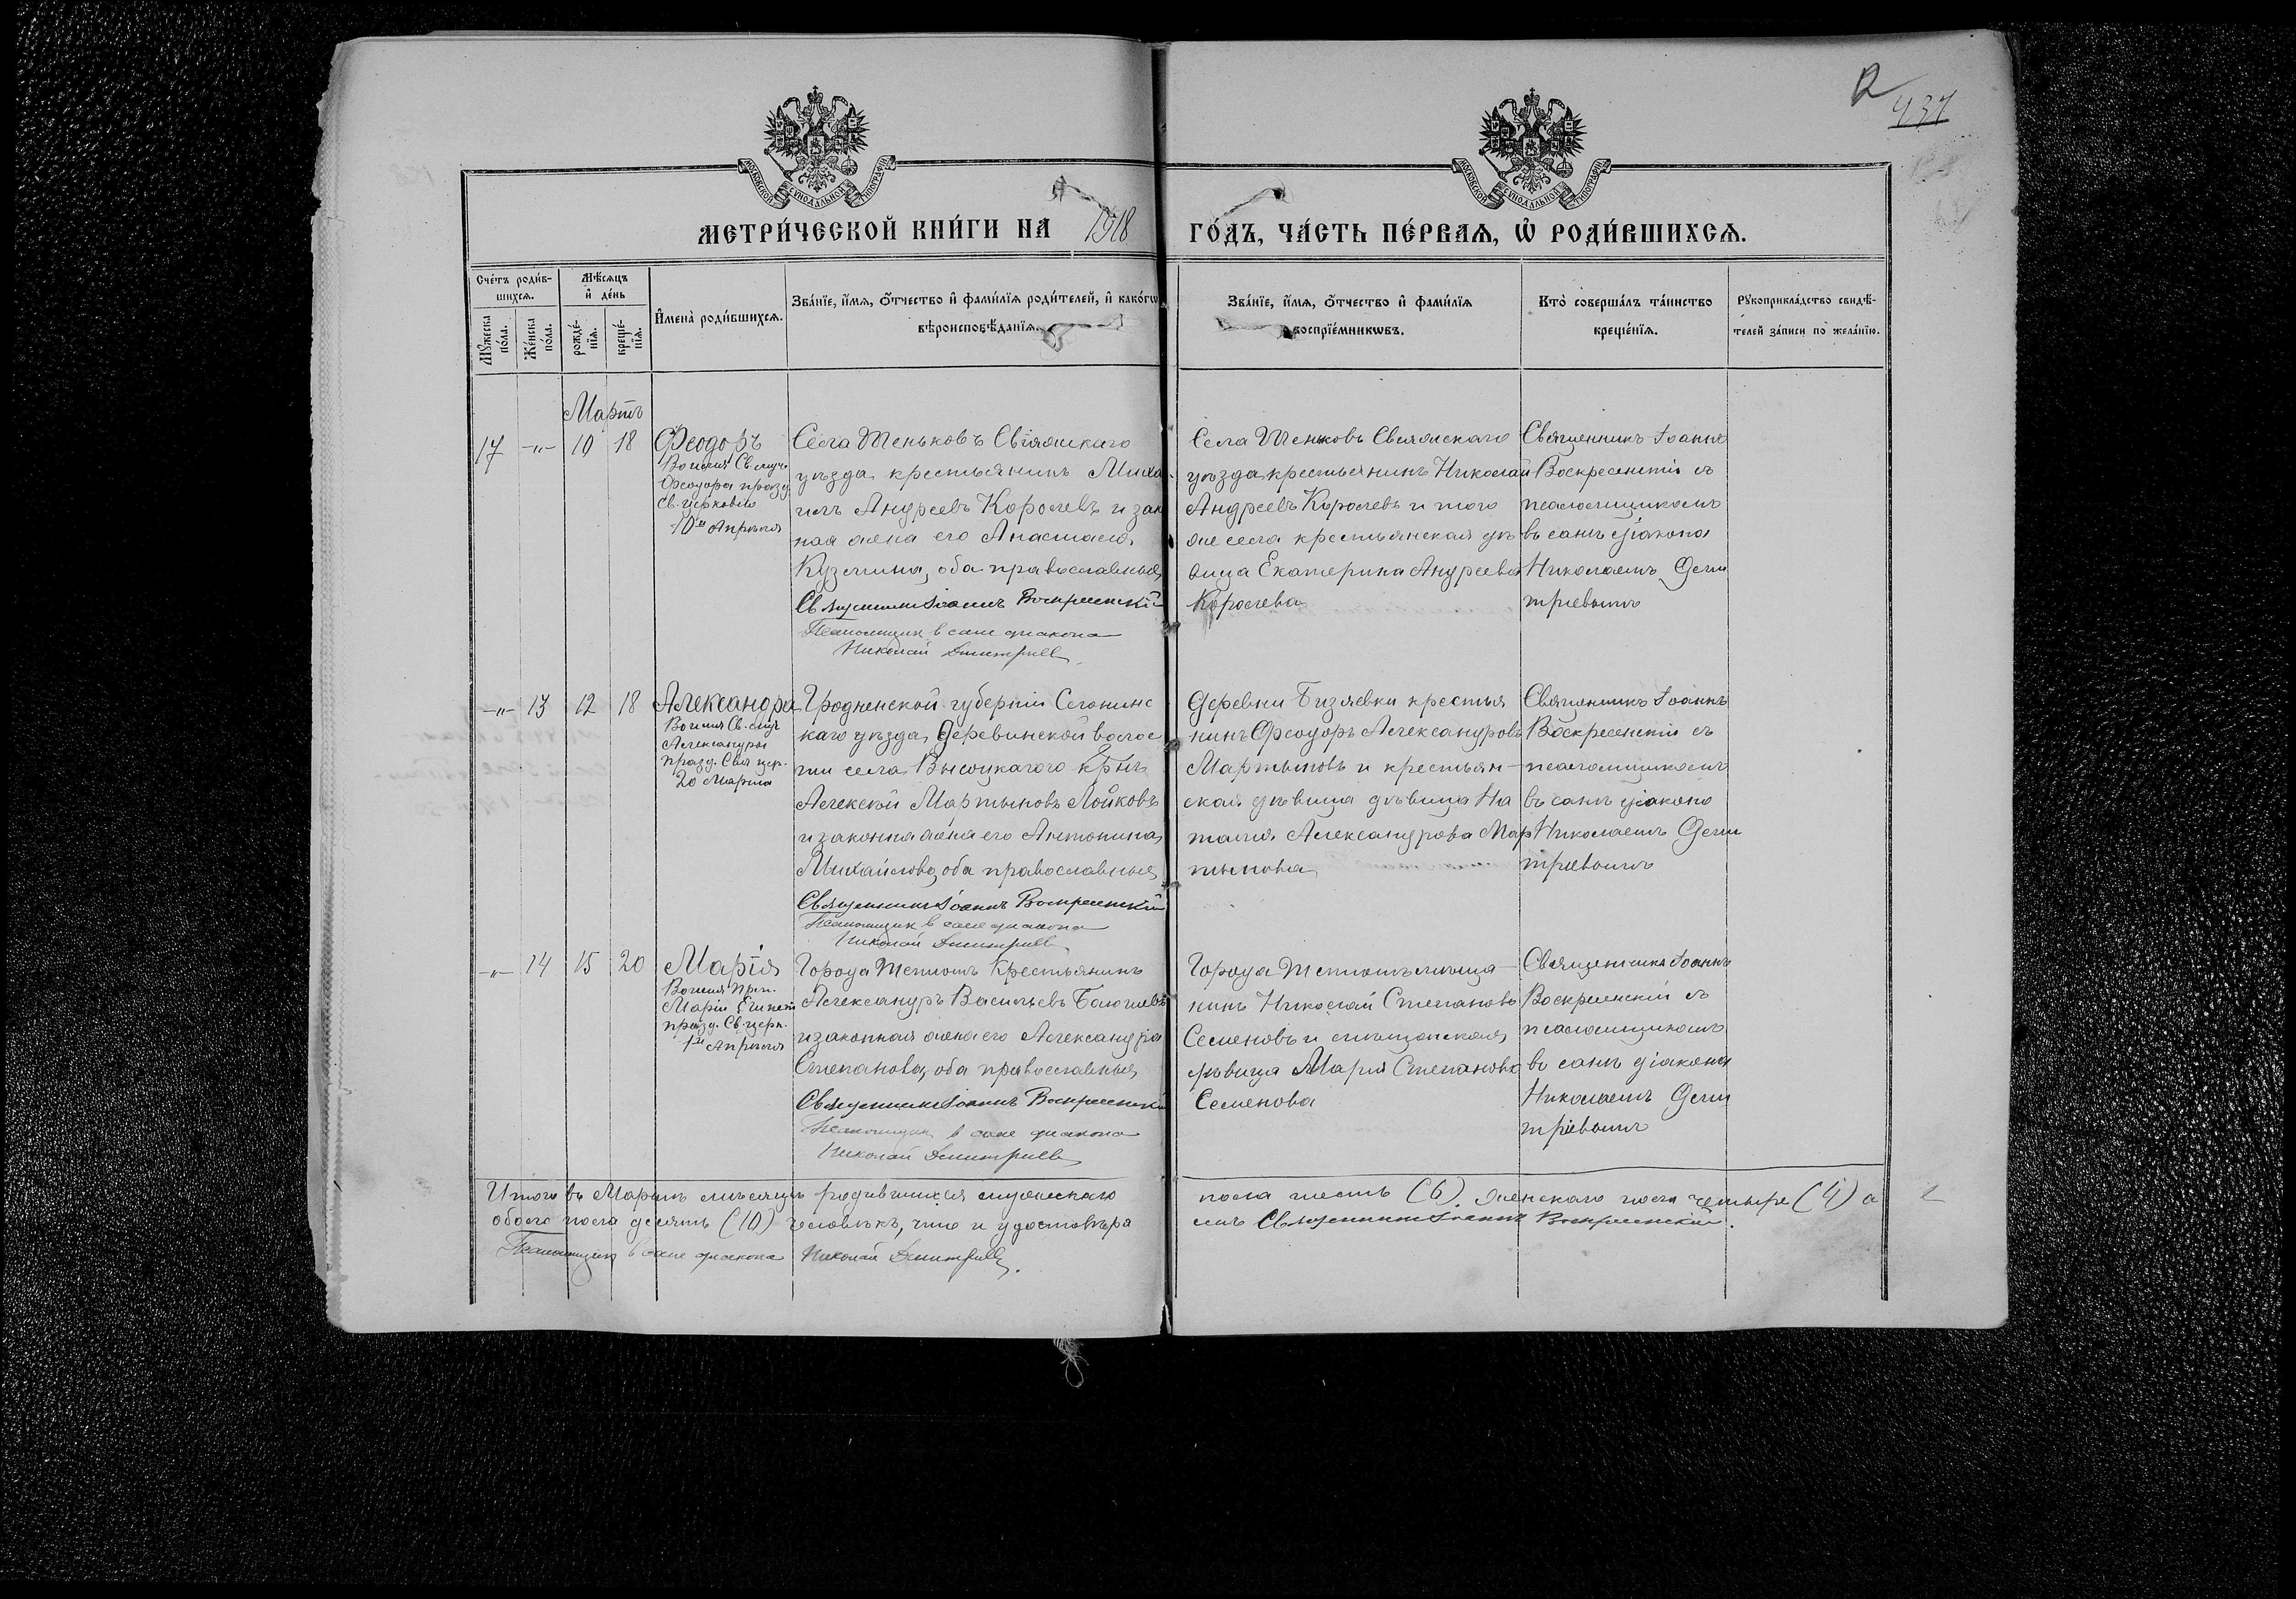 437
МОСКОВСКОЙ СѴНОДАЛЬНОЙ ТИПОГРАФІИ
МОСКОВСКОЙ СѴНОДАЛЬНОЙ ТИПОГРАФІИ
МЕТРИ́ЧЕСКОЙ КНИ́ГИ НА 1918 ГО́ДЪ, ЧА́СТЬ ПЕ́РВАѦ, Ѡ҆ РОДИ́ВШИХСѦ.
Счетъ родив-
шихсѧ.
Мꙋжеска
пола.
Женска
пола.
Мѣсѧцъ
и день
рожде-
нїѧ.
креще-
нїѧ.
Имена родившихсѧ.
Званїе, имѧ, отчество и фамилїѧ родителей, и какогѡ
вѣроисповѣданїѧ.
Званїе, имѧ, отчество и фамилїѧ
воспрїемникѡвъ.
Кто совершалъ таинство
крещенїѧ.
Рꙋкоприкладство свидѣ-
телей записи по желанїю.
Мартъ
17 -"- 10 18
Ѳеодоръ
Во имя Св. муч.
Ѳеодора празд.
Св. церковію
10го Апрѣля
Села Теньковъ Свіяжскаго
уѣзда крестьянинъ Миха
илъ Андреевъ Королевъ и зак
ная жена его Анастасія
Кузмина, оба православные
Священникъ Іоаннъ Воскресенскій
Псаломщик в сане диакона
Николай Дмитриев
Села Теньковъ Свіяжскаго
уѣзда крестьянинъ Николай
Андреевъ Королевъ и того
же села крестьянская дѣ
вица Екатерина Андреева
Королева
Священникъ Іоаннъ
Воскресенскій съ
псаломщикомъ
въ санѣ діакона
Николаемъ Дми
тріевымъ
-"- 13 12 18
Александра
Во имя Св. муч.
Александры
празд. Свя цер.
20 Марта
Гродненской губерніи Слонимс
каго уѣзда, Деревинской волос
ти села Высоцкагого кр-нъ
Алексѣй Мартыновъ Лойковъ
и законна жена его Антонина
Михайлова, оба православные
Священникъ Іоаннъ Воскресенскій
Псаломщик в сане диакона
Николай Дмитриев
Деревни Бизяевки крестья
нинъ Ѳеодоръ Александровъ
Мартыновъ и крестьян-
ская дѣвица дѣвица На
талія Александрова Мар
тынова
Священникъ Іоаннъ
Воскресенскій съ
псаломщикомъ
въ санѣ діакона
Николаемъ Дми
тріевымъ
-"- 14 15 20
Марія
Во имя Преп.
Маріи Египет
празд. Св. церк.
1го Апрѣля
Города Тетюшъ Крестьянинъ
Александръ Васильевъ
и законная жена его Александра
Степанова, оба православные
Священникъ Іоаннъ Воскресенскій
Псаломщик в сане диакона
Николай Дмитриев
Города Тетюшъ мѣща-
нинъ Николай Степановъ
Семеновъ и мѣщанская
дѣвица Марія Степановна
Семенова
Священникъ Іоаннъ
Воскресенскій съ
псаломщикомъ
въ санѣ діакона
Николаемъ Дми
тріевымъ
Итого въ Мартѣ мѣсяцѣ родившихся мужескаго пола шесть (6), женскаго пола четыре (4) а
обоего пола десять (10) человѣкъ, что и удостовѣряемъ Священникъ Іоаннъ Воскресенскій.
Псаломщик в сане диакона Николай Дмитриев.